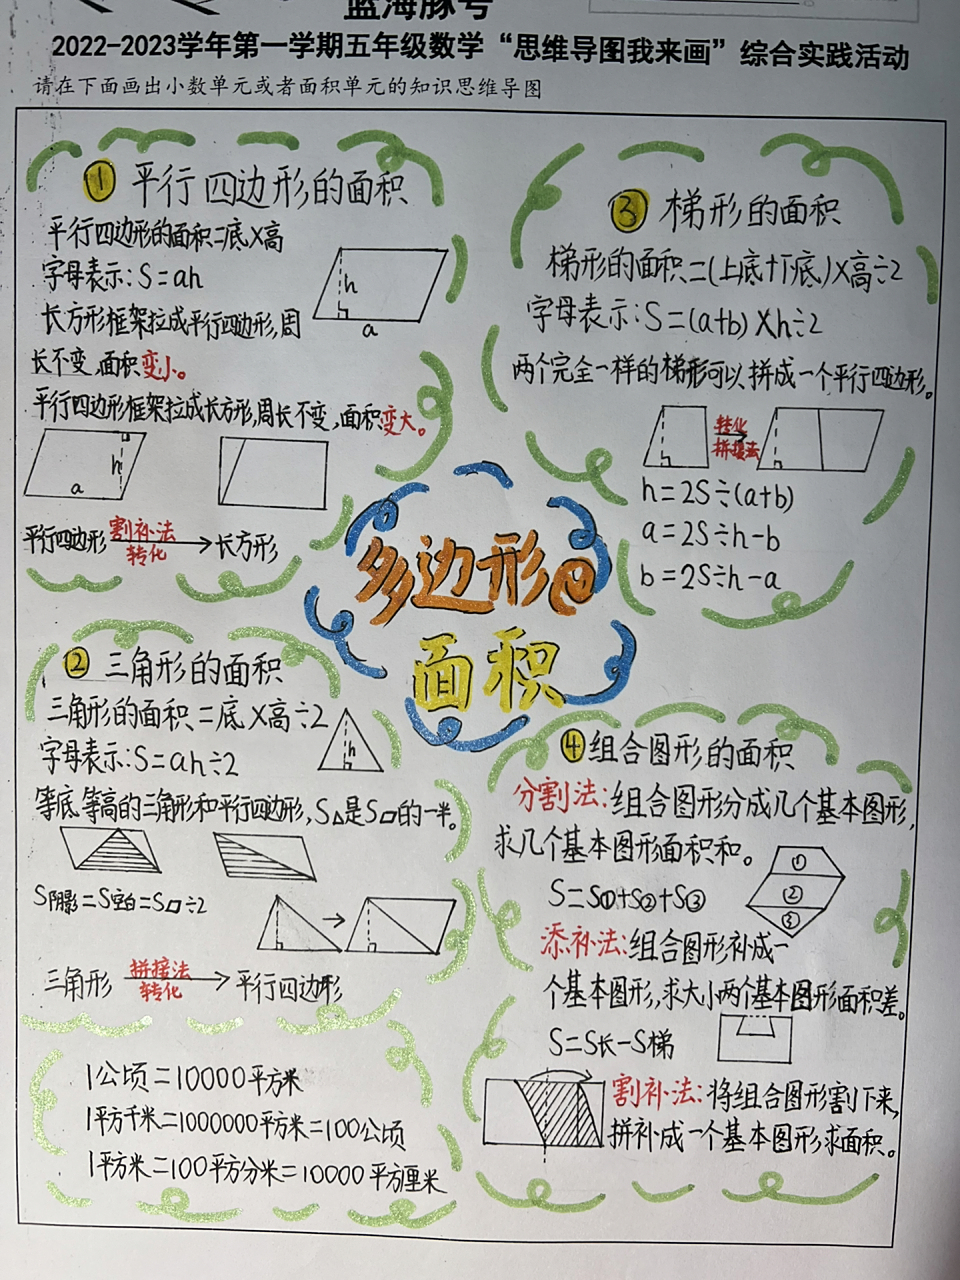 蓝海豚号
2022-2023学年第一学期五年级数学“思维导图我来画”综合实践活动
请在下面画出小数单元或者面积单元的知识思维导图
① 平行四边形的面积
平行四边形的面积=底×高
字母表示:S=ah
h
a
长方形框架拉成平行四边形,周
长不变,面积变小。
平行四边形框架拉成长方形,周长不变,面积变大。
h
a
平行四边形 割补法 转化 → 长方形
多边形的
面积
② 三角形的面积
三角形的面积=底×高÷2
字母表示:S=ah÷2
h
等底等高的三角形和平行四边形,S△是S▱的一半。
S阴影=S空白=S▱÷2
→
三角形 拼接法 转化 → 平行四边形
1公顷=10000平方米
1平方千米=1000000平方米=100公顷
1平方米=100平方分米=10000平方厘米
③ 梯形的面积
梯形的面积=(上底+下底)×高÷2
字母表示:S=(a+b)×h÷2
两个完全一样的梯形可以拼成一个平行四边形。
转化
拼接法
h=2S÷(a+b)
a=2S÷h-b
b=2S÷h-a
④ 组合图形的面积
分割法:组合图形分成几个基本图形,
求几个基本图形面积和。
①
②
③
S=S①+S②+S③
添补法:组合图形补成一
个基本图形,求大小两个基本图形面积差。
S=S长-S梯
割补法:将组合图形割下来,
拼补成一个基本图形求面积。